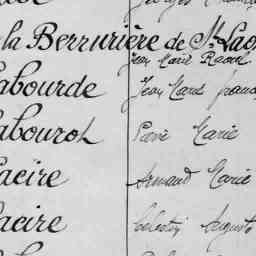 la Berrurière de St Lao
Jean Marie Raoul
Labourde Jean Marie franc
Labourot Pierre Marie
Lacire Armand Marie
Lacire Célestin Auguste